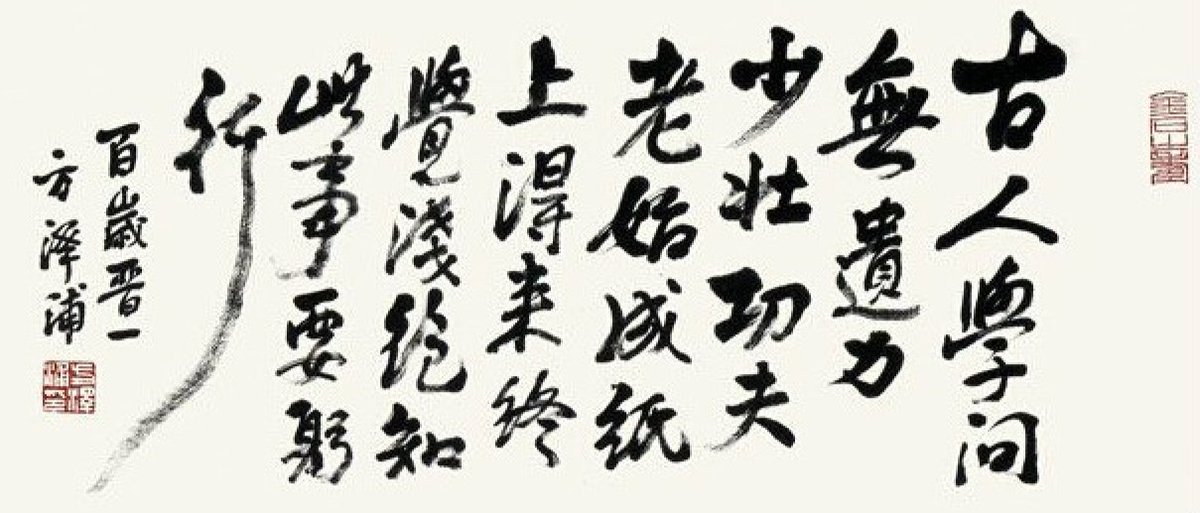 古人學问
無遺力
少壮功夫
老始成纸
上得来终
覺淺絶知
此事要躬
行
百歲晋一
方泽浦
方澤浦印